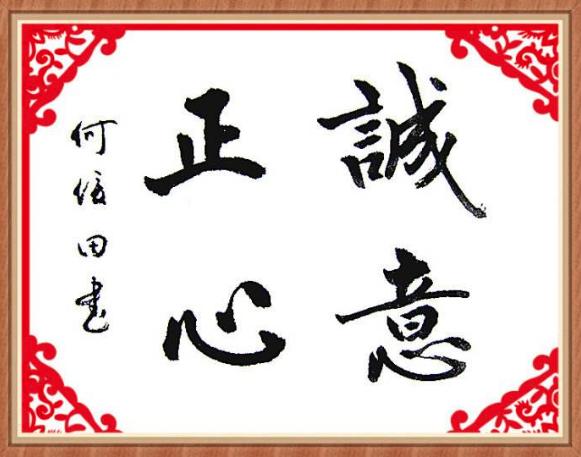 誠意
正心
何俊田書